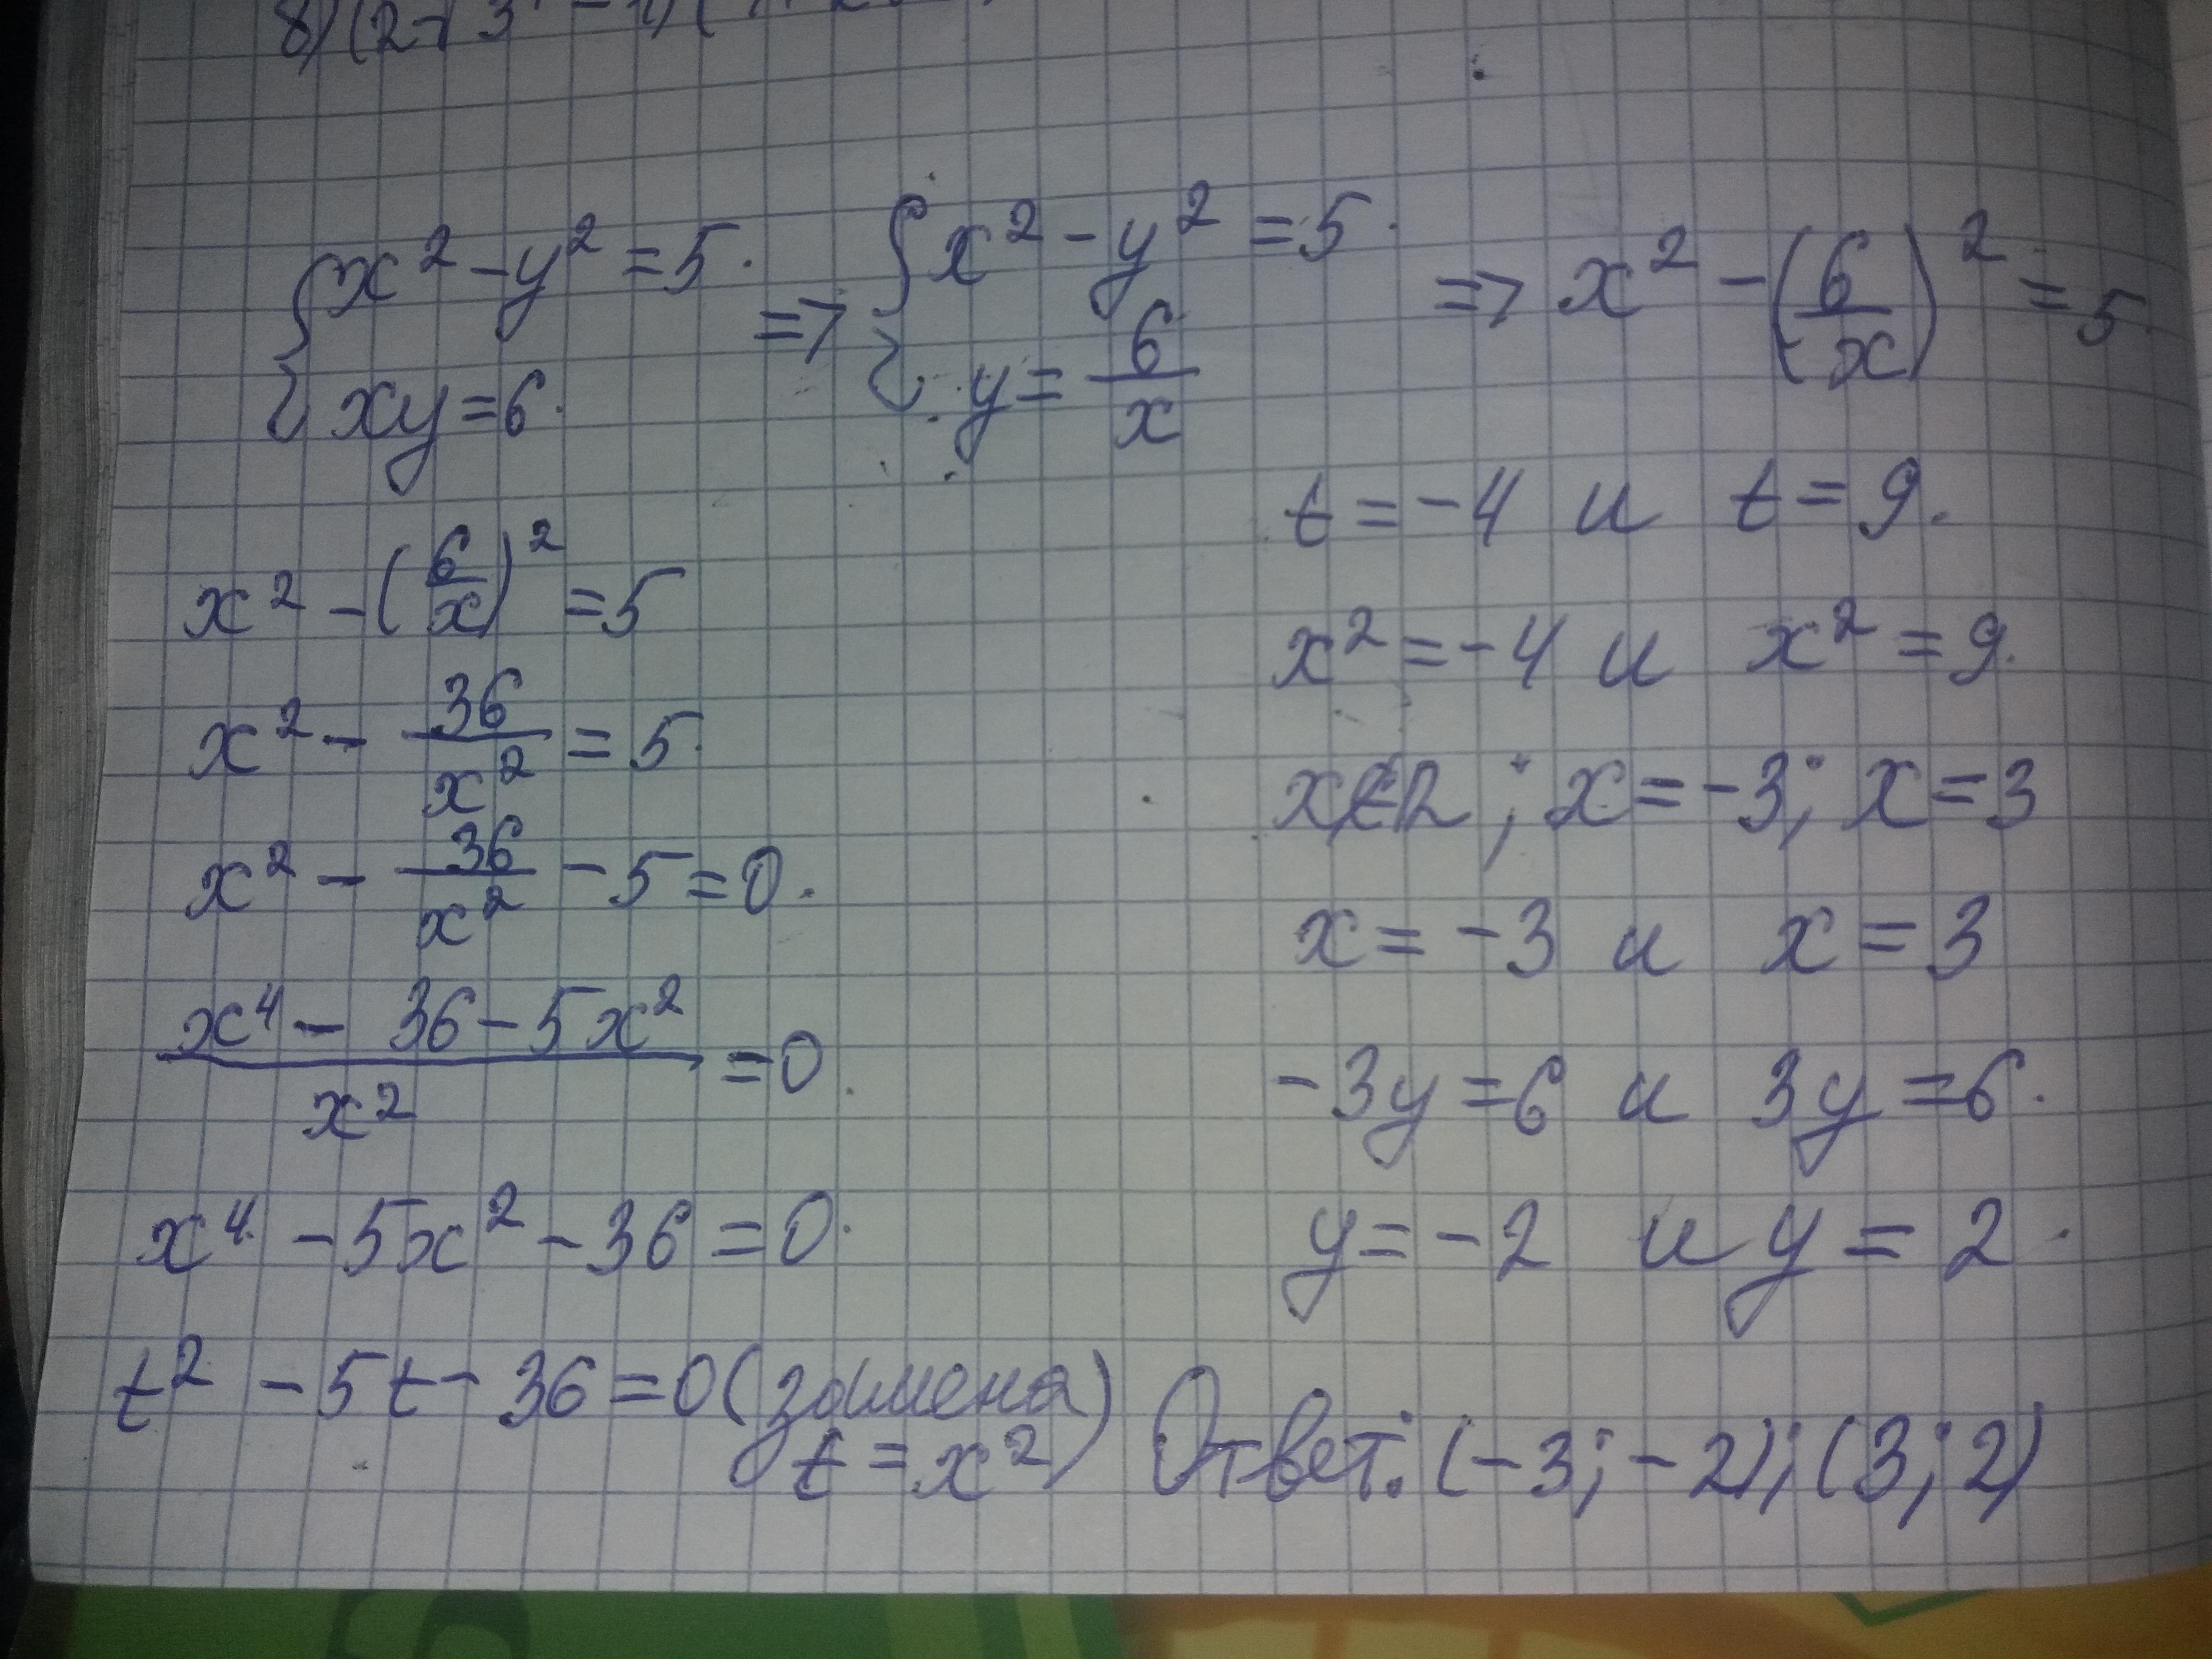 {x² - y² = 5. => {x² - y² = 5. => x² - (6/x)² = 5
{xy = 6. {y = 6/x
x² - (6/x)² = 5
x² - 36/x² = 5.
x² - 36/x² - 5 = 0.
(x⁴ - 36 - 5x²)/x² = 0.
x⁴ - 5x² - 36 = 0.
t² - 5t - 36 = 0 (замена
t = x²)
t = -4 и t = 9.
x² = -4 и x² = 9.
x∉R; x = -3; x = 3
x = -3 и x = 3
-3y = 6 и 3y = 6.
y = -2 и y = 2.
Ответ: (-3; -2); (3; 2)